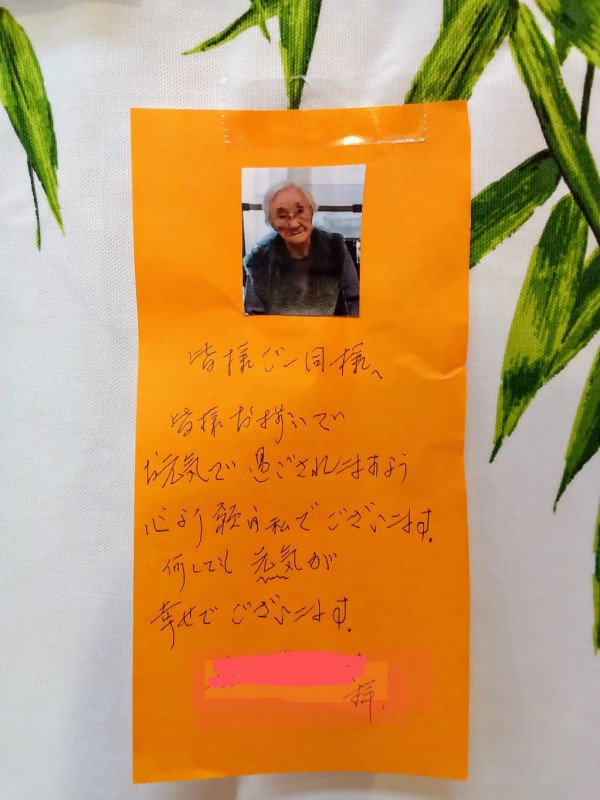 皆様ご一同様へ
皆様お揃いで
お元気で過ごされますよう
心より願う私でございます。
何しても元気が
幸せでございます。
拝.